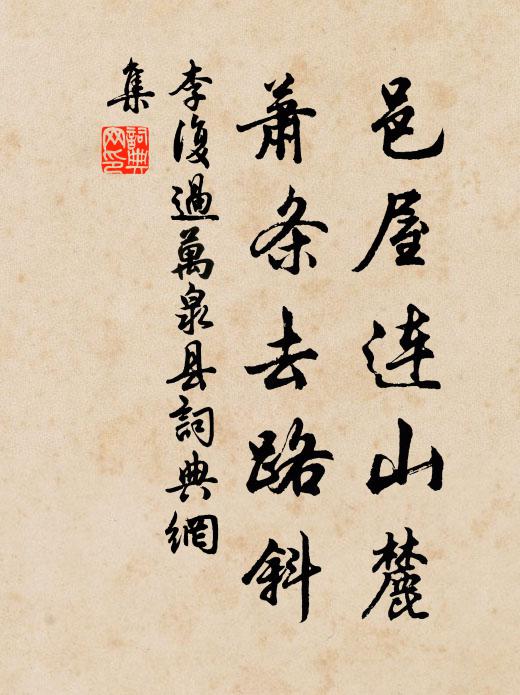 邑屋连山麓
萧条去路斜
李復過萬泉县詞典網
集
詞典网印